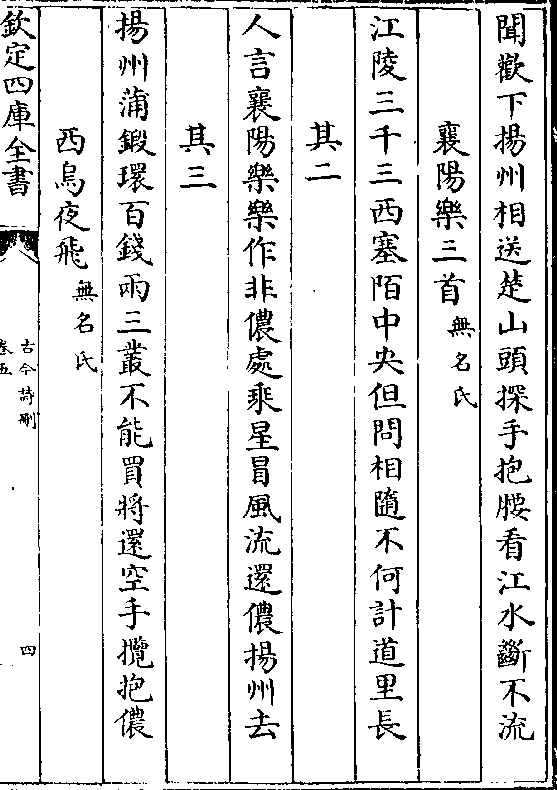 聞歡下揚州相送楚山頭探手抱腰看江水斷不流
襄陽樂三首無名氏
江陵三千三西塞陌中央但問相隨不何計道里長
其二
人言襄陽樂樂作非儂處乘星冒風流還儂揚州去
其三
揚州蒲鍜環百錢兩三叢不能買將還空手攬抱儂
西烏夜飛無名氏
欽定四庫全書
古今詩刪
卷五
四